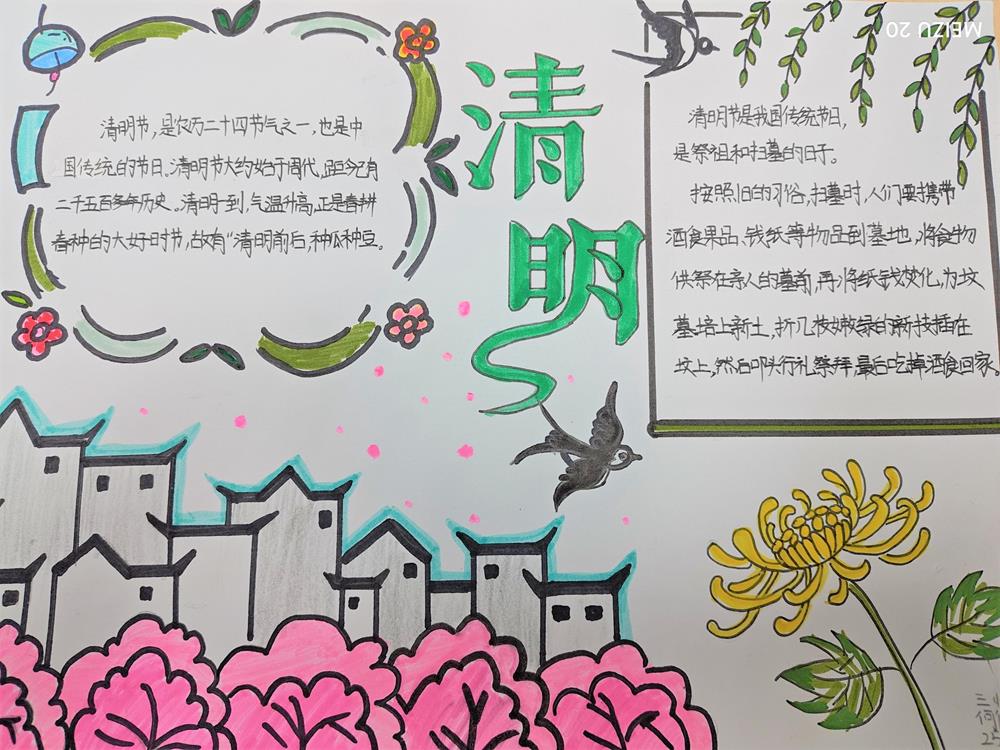 清明
清明节,是农历二十四节气之一,也是中
国传统的节日。清明节大约始于周代,距今已有
二千五百多年历史。清明一到,气温升高,正是春耕
春种的大好时节,故有“清明前后,种瓜种豆。
清明节是我国传统节日,
是祭祖和扫墓的日子。
按照旧的习俗,扫墓时,人们要携带
酒食果品、钱纸等物品到墓地,将食物
供祭在亲人的墓前,再将纸钱焚化,为坟
墓培上新土,折几枝嫩绿的新枝插在
坟上,然后叩头行礼祭拜,最后吃掉酒食回家。
MEIZU 20
三
何